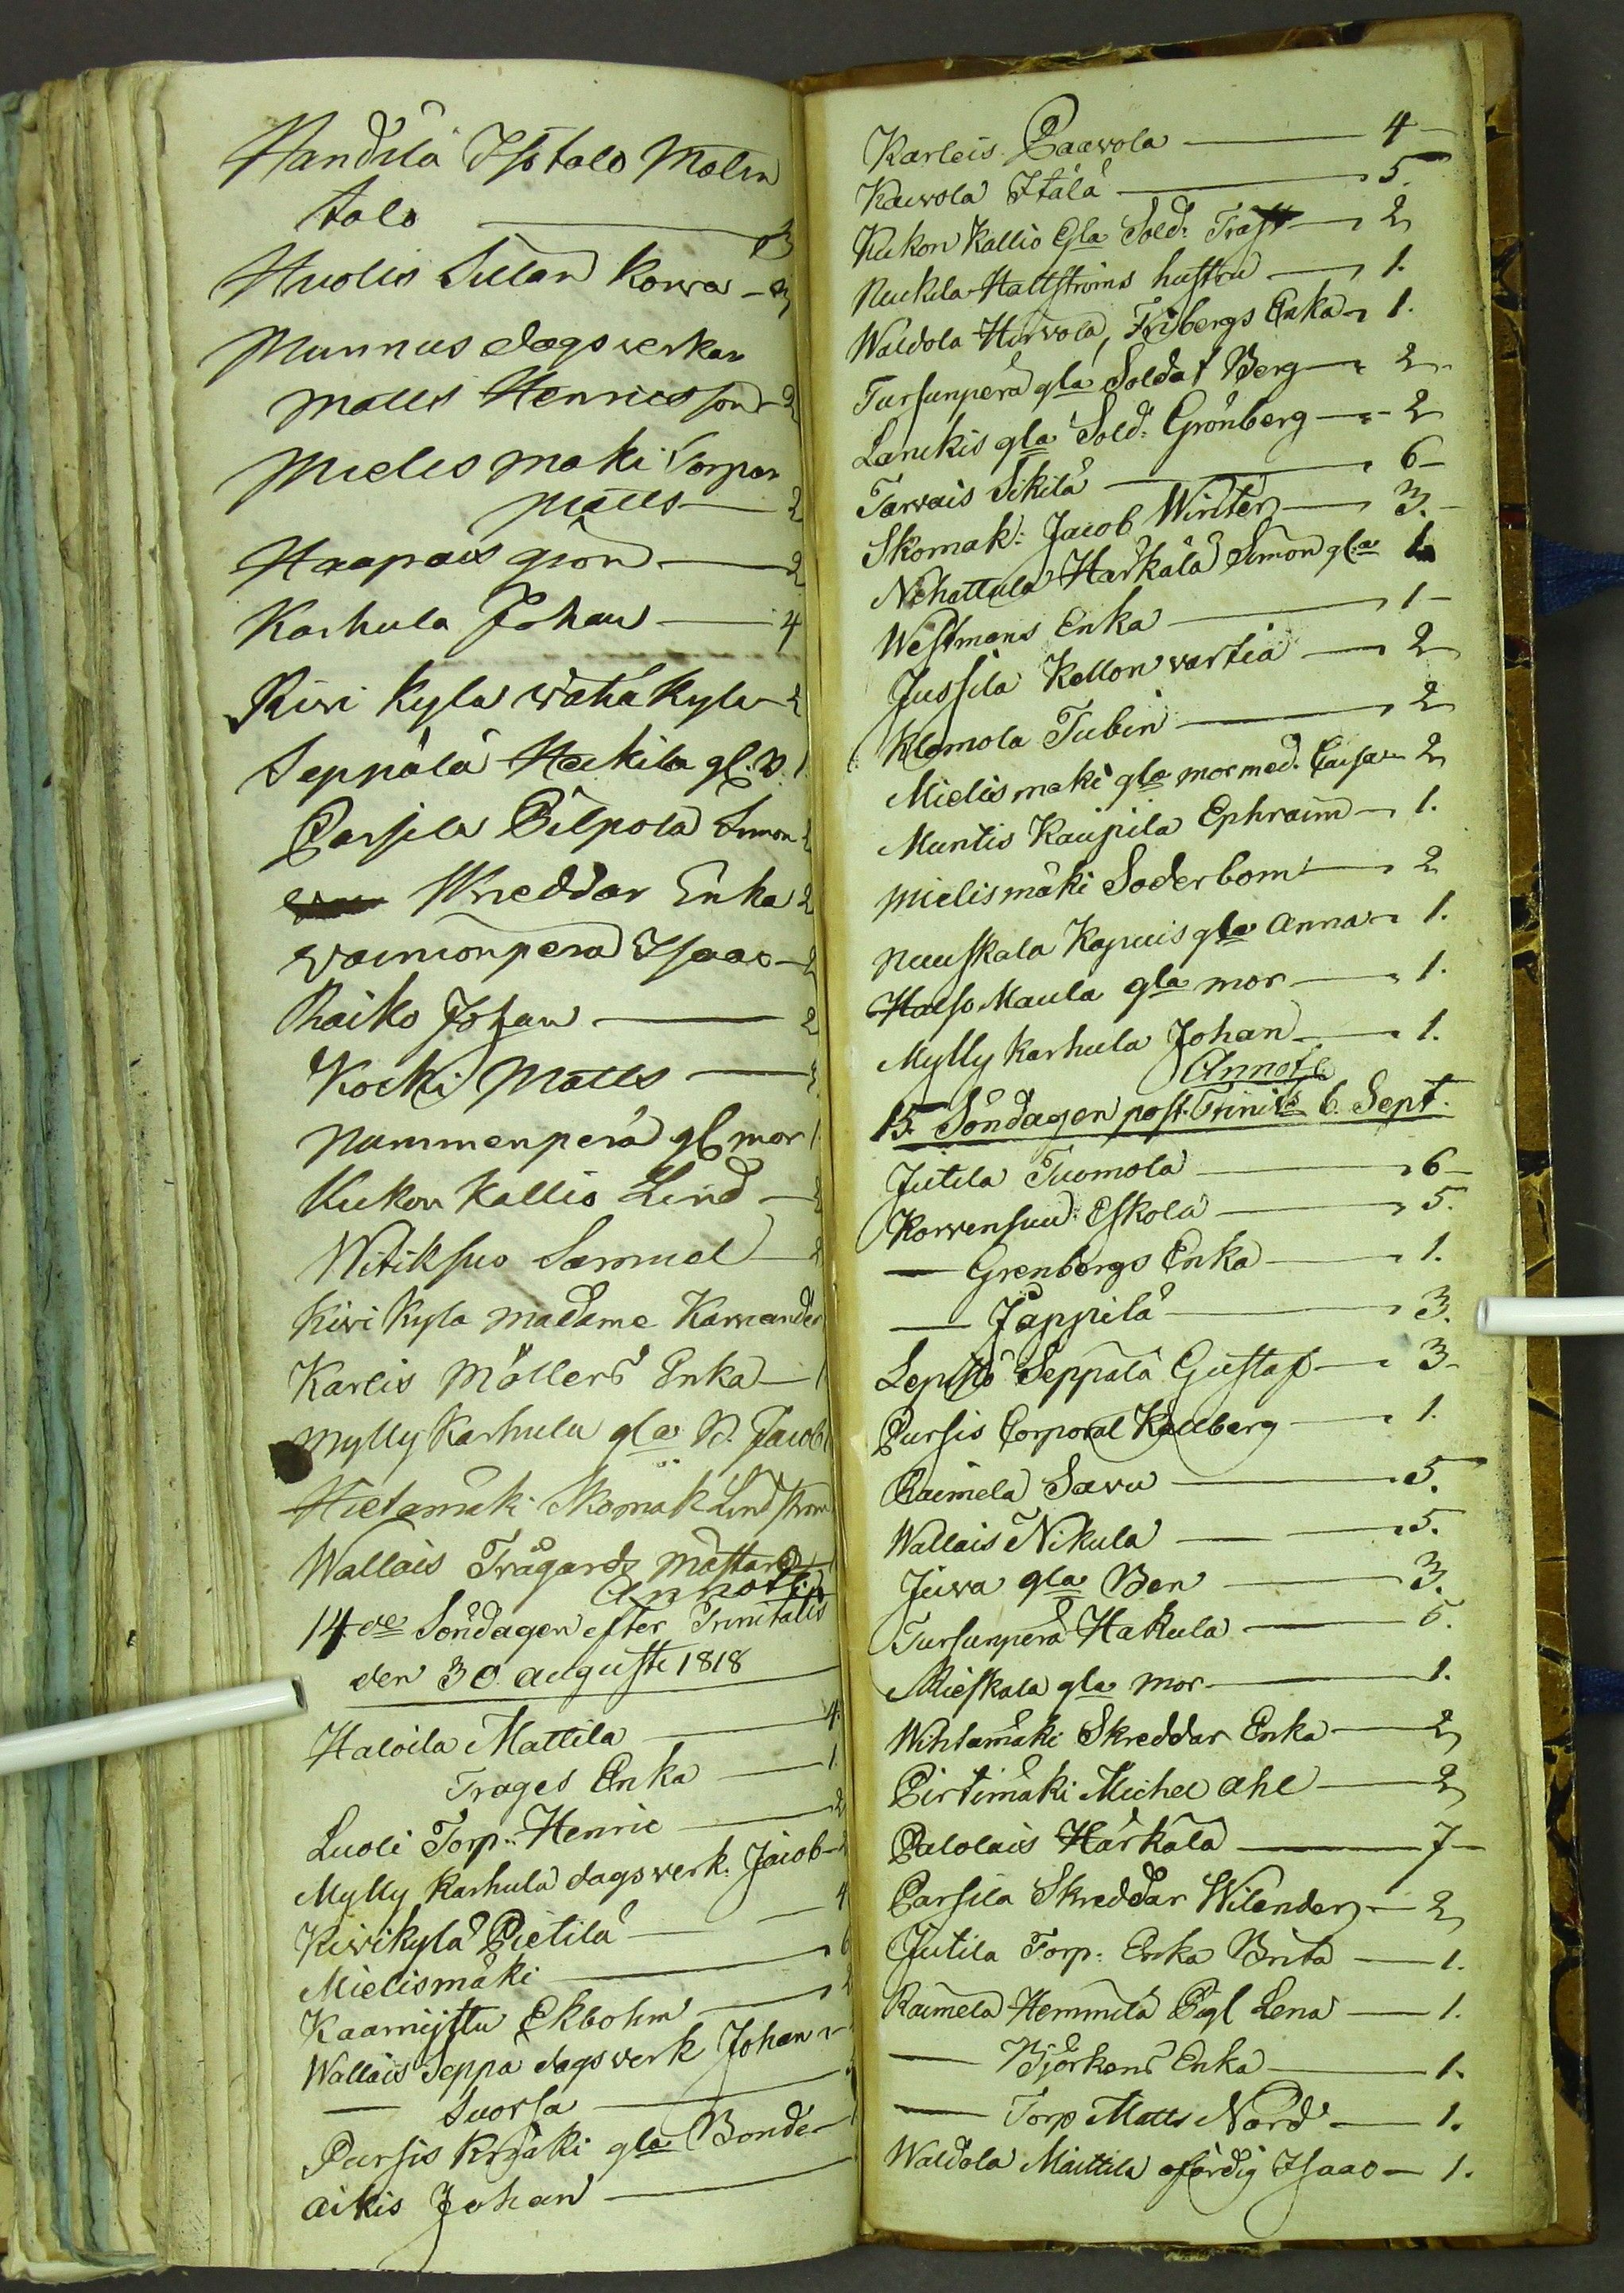 Handila Isotalo Malin
talo — 3
Huolis Sillan Korva — 3
Munnus dagsverkar
Matts Henricsson — 2
Mielismäki Torpar
Matts — 2
Haapais grön — 2
Karhula Johan — 4
Kivi kyla Wähäkyla — 2
Seppälä Heikila gl. B. 1
Parsila Pilpola Simon 2
Skreddar Enka 2
Vainionperä Isaac — 2
Raiko Johan — 2
Kocki Matts —
Nummenperä gl mor 1
Kukon Kallio Lind — 2
Witiksuo Samuel — 2
Kivi Kyla Madame Karvander
Karlis Möllers Enka — 1
Mylly Karhula gla B. Jacob 1
Hietamäki Skomak Lindström
Wallais Trägårdz mästar
Annot
14de Söndagen efter Trinitatis
den 30 augusti 1818
Haloila Mattila — 4.
Trages Enka — 1
Luoli Torp: Henric — 2
Mylly Karhula dagsverk. Jacob — 2
Kivikylä Pietilä — 4
Mielismäki — 6
Kaarnijttu Ekbohm — 2
Wallais Seppä dagsverk Johan
— Suorsa —
Pursis Krjäki gla Bonde —
Aikis Johan —
Karleis Paavola — 4 —
Kauvola Itälä — 5.
Kukon Kallio Gla Sold: Trast — 2
Nuckila Hallströms hustru — 1.
Waldola Hirvola, Fribergs Enka — 1.
Tursunperä gla Soldat Berg — 2
Lanckis gla Sold: Grönberg — 2
Tarvais Sikilä — 6 —
Skomak: Jacob Winter — 3. —
Nihattula Harkälä Simon gla 1
Westmans Enka — 1 —
Jussila Kellon vartia — 2
Klemola Tubin — 2
Mielismäki gla mor med. Caisa — 2
Muntis Kaupila Ephraim — 1.
Mielismäki Söderbom — 2
Nuuskala Kapuis gla Anna — 1.
Halso Maula gla mor — 1.
Mylly Karhula Johan — 1.
Annot
15. Söndagen post. Trinits 6. Sept.
Jutila Tuomola — 6 —
Korvensuu: Eskola — 5.
— Grenbergs Enka — 1.
— Jäppilä — 3.
Lepistö Seppälä Gustaf — 3 —
Pursis Corporal Kallberg — 1.
Raimela Savu — 5.
Wallais Nikula — 5.
Juva gla Ben — 3.
Tursunperä Hakula — 5.
Mieskala gla mor — 1.
Wihtamäki Skreddar Enka — 2
Pirtimäki Michel Ahl — 2
Palolais Härkälä — 7 —
Parsila Skreddar Wilander — 2
Jutila Torp: Enka Brita — 1.
Raimela Hemmilä Pigl Lena — 1.
— Björkens Enka — 1.
— Torp Matts Nord — 1.
Waldola Maittila ofärdig Isaac — 1.